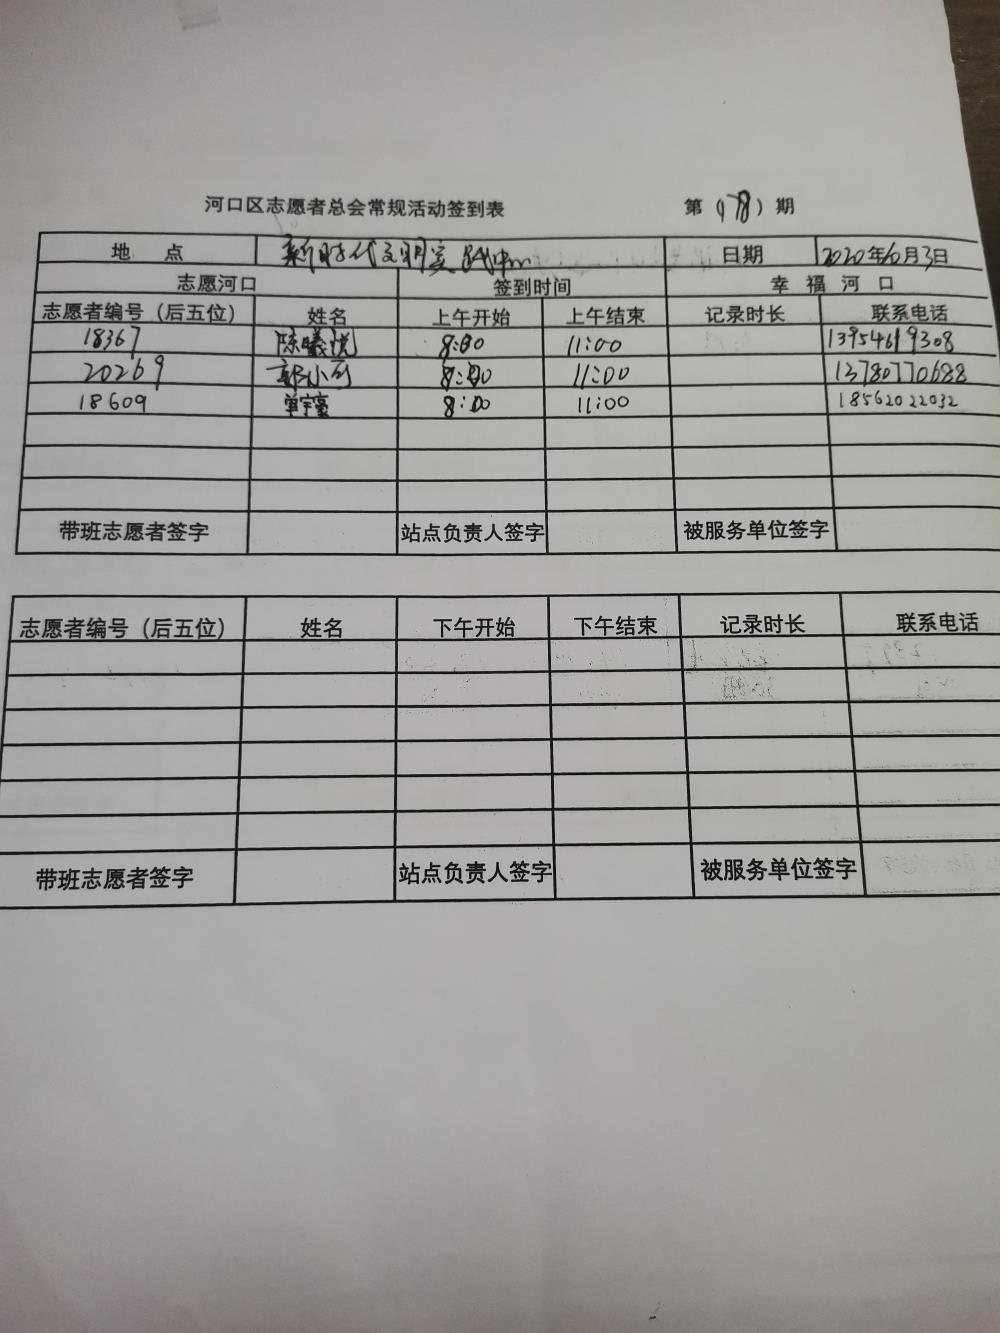 河口区志愿者总会常规活动签到表 第（78）期
地 点 新时代文明实践中心 日期 2020年6月3日
志愿河口 签到时间 幸福河口
志愿者编号（后五位） 姓名 上午开始 上午结束 记录时长 联系电话
18367 陈曦悦 8:00 11:00 13954619308
20269 郭小 8:00 11:00 13780770688
18609 单宇豪 8:00 11:00 18562022032
带班志愿者签字 站点负责人签字 被服务单位签字
志愿者编号（后五位） 姓名 下午开始 下午结束 记录时长 联系电话
带班志愿者签字 站点负责人签字 被服务单位签字